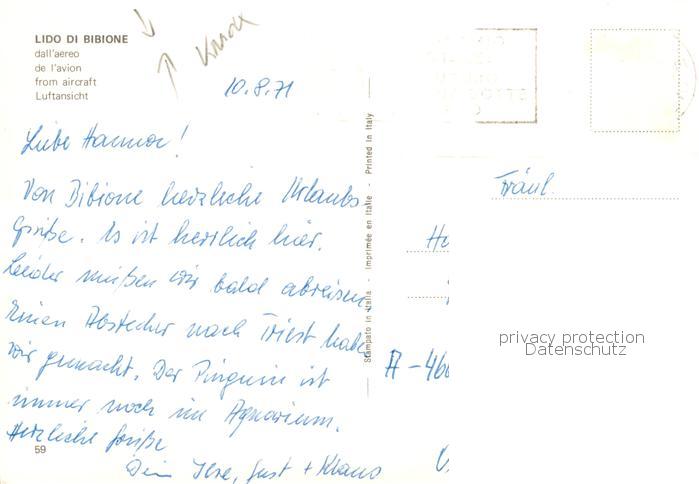 LIDO DI BIBIONE
dall'aereo
de l'avion
from aircraft
Luftansicht
Knick
10.8.71
Liebe Hannor!
Von Bibione herzliche Urlaubs-
grüße. Es ist herrlich hier.
Leider müßen wir bald abreisen.
Einen Abstecher nach Triest haben
wir gemacht. Der Pinguin ist
immer noch im Aquarium.
Herzliche Grüße
Dein Ilse, Gust + Klaus
59
Stampato in Italia - Imprimée en Italie - Printed in Italy
Fräul.
A-460
privacy protection
Datenschutz